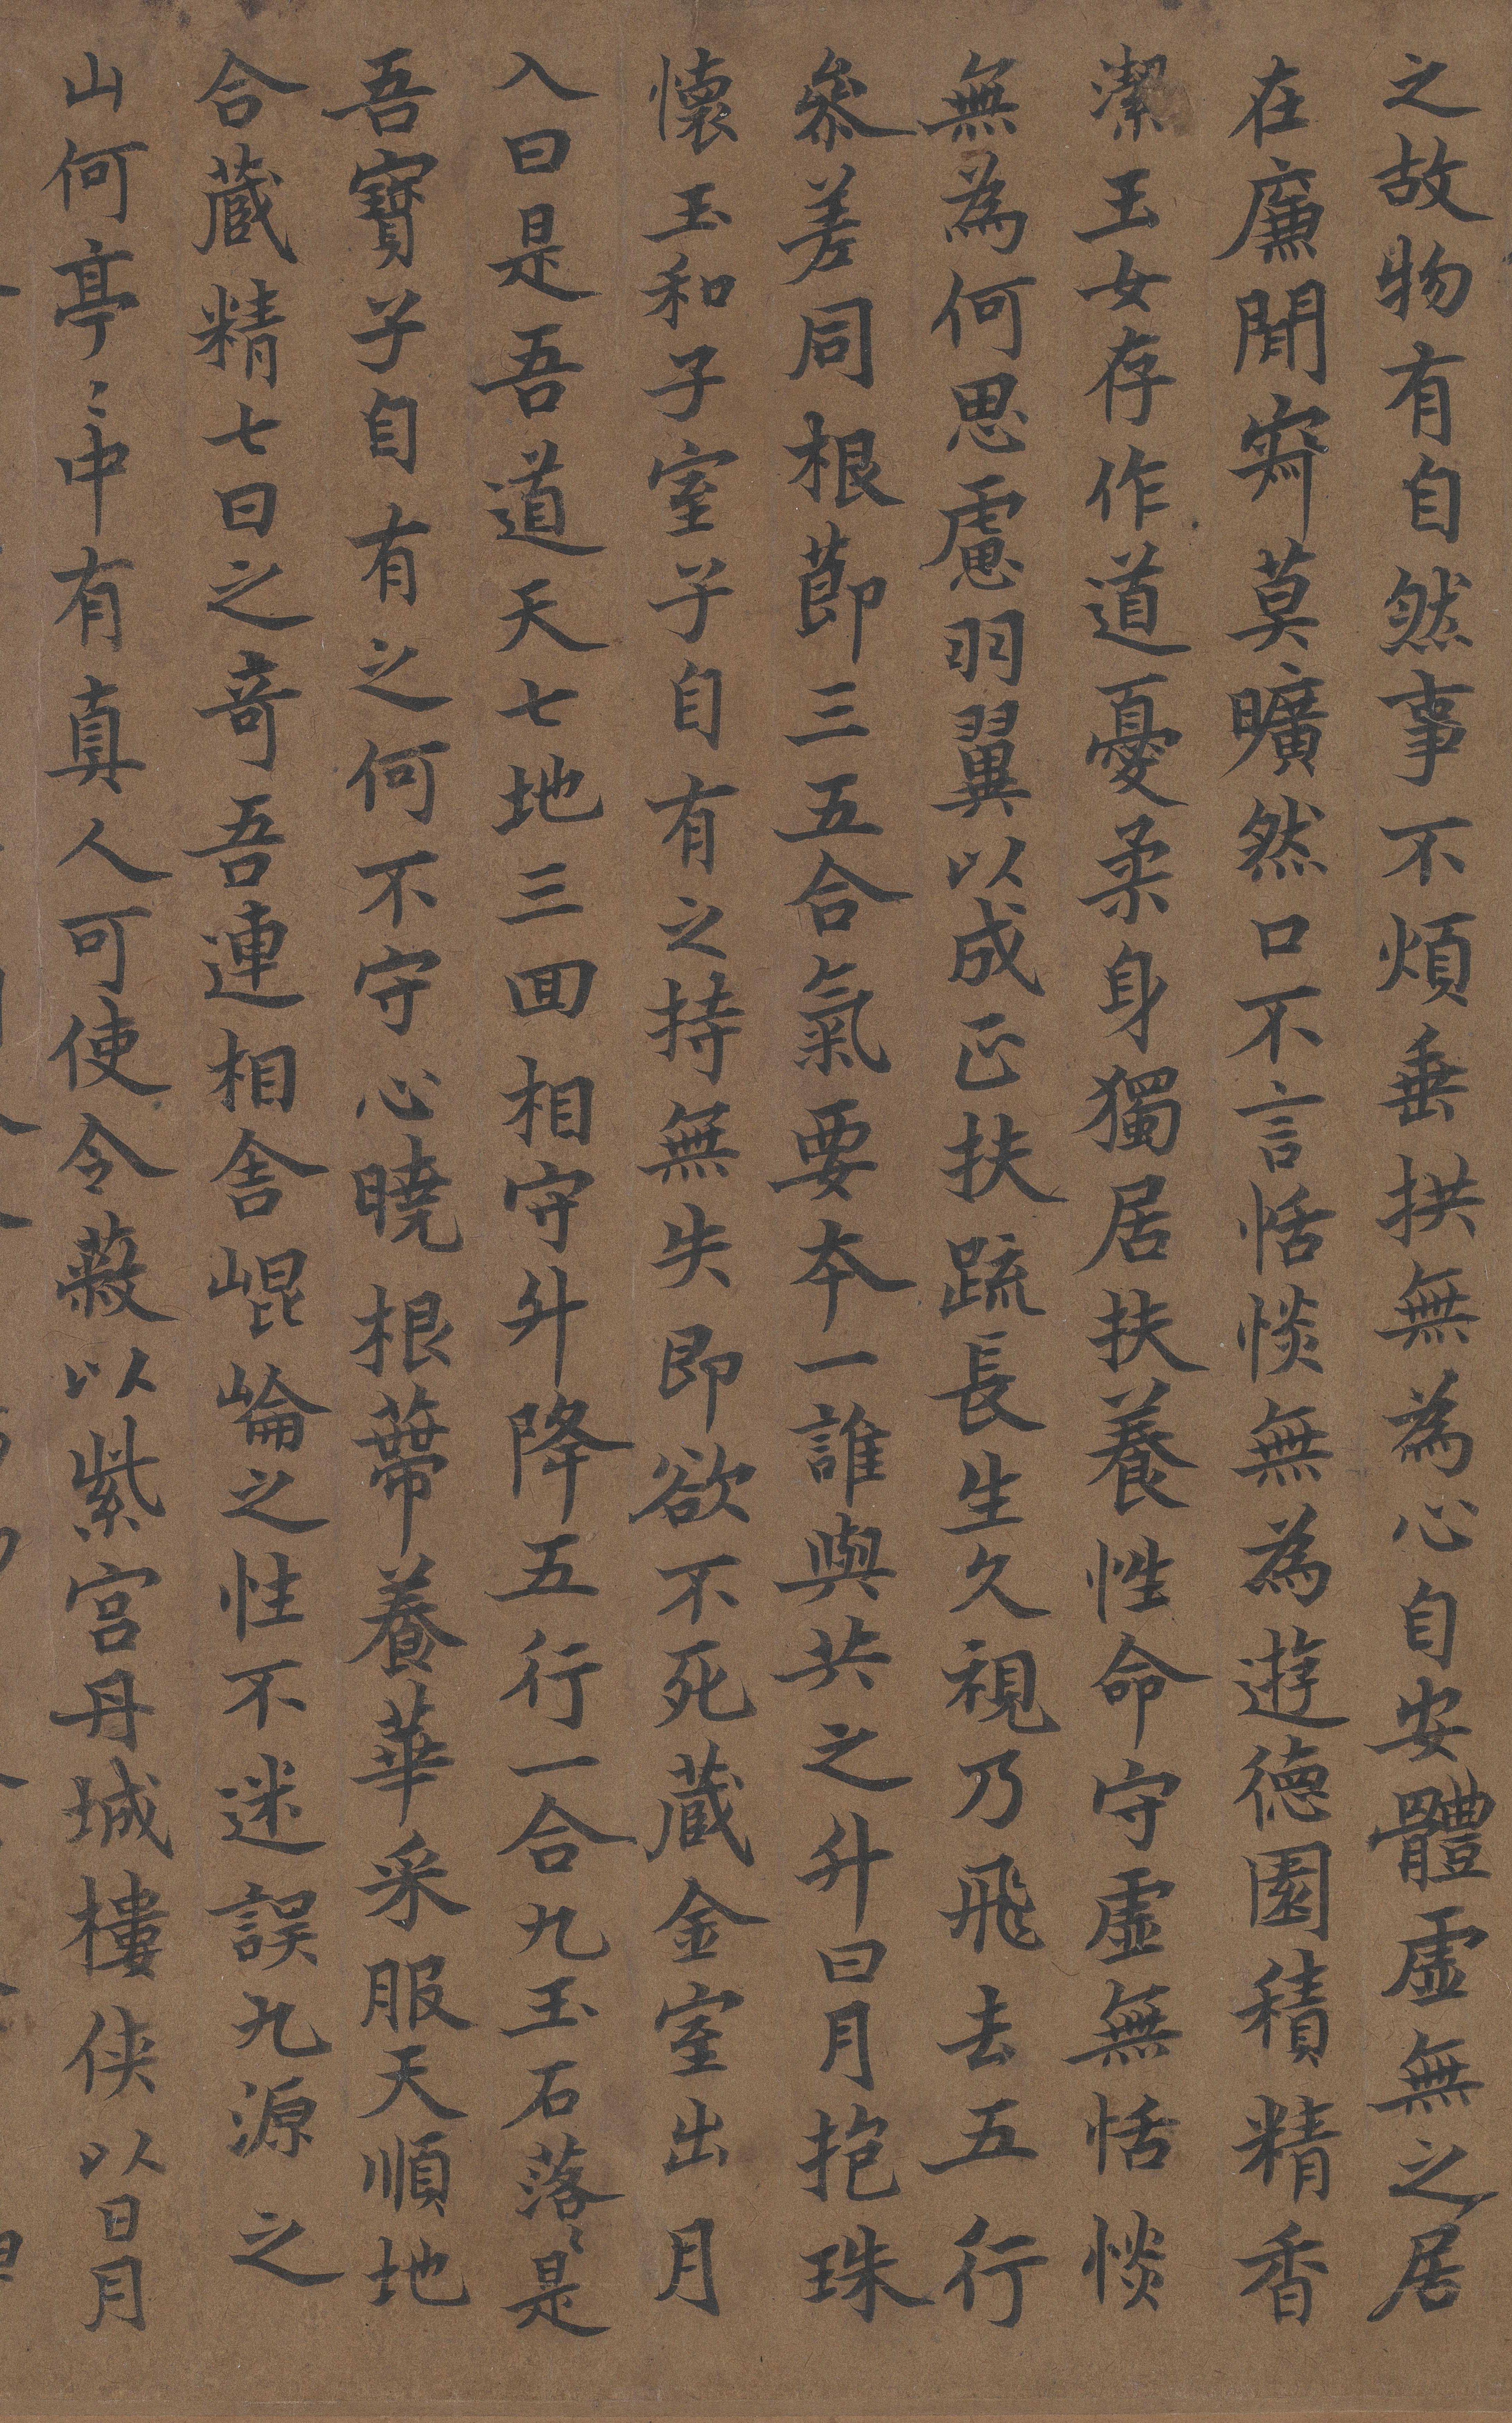 之故物有自然事不煩垂拱無為心自安體虛無之居
在廉閒寂莫曠然口不言恬惔無為遊德園積精香
潔玉女存作道憂柔身獨居扶養性命守虛無恬惔
無為何思慮羽翼以成正扶疏長生久視乃飛去五行
叅差同根莭三五合氣要夲一誰與共之升日月抱珠
懷玉和子室子自有之持無失即欲不死蔵金室出月
入日是吾道天七地三回相守升降五行一合九玉石落〻是
吾寶子自有之何不守心曉根蔕養華采服天順地
合蔵精七日之竒吾連相舎崐崘之性不迷誤九源之
山何亭〻中有真人可使令蔽以紫宫丹城樓俠以日月